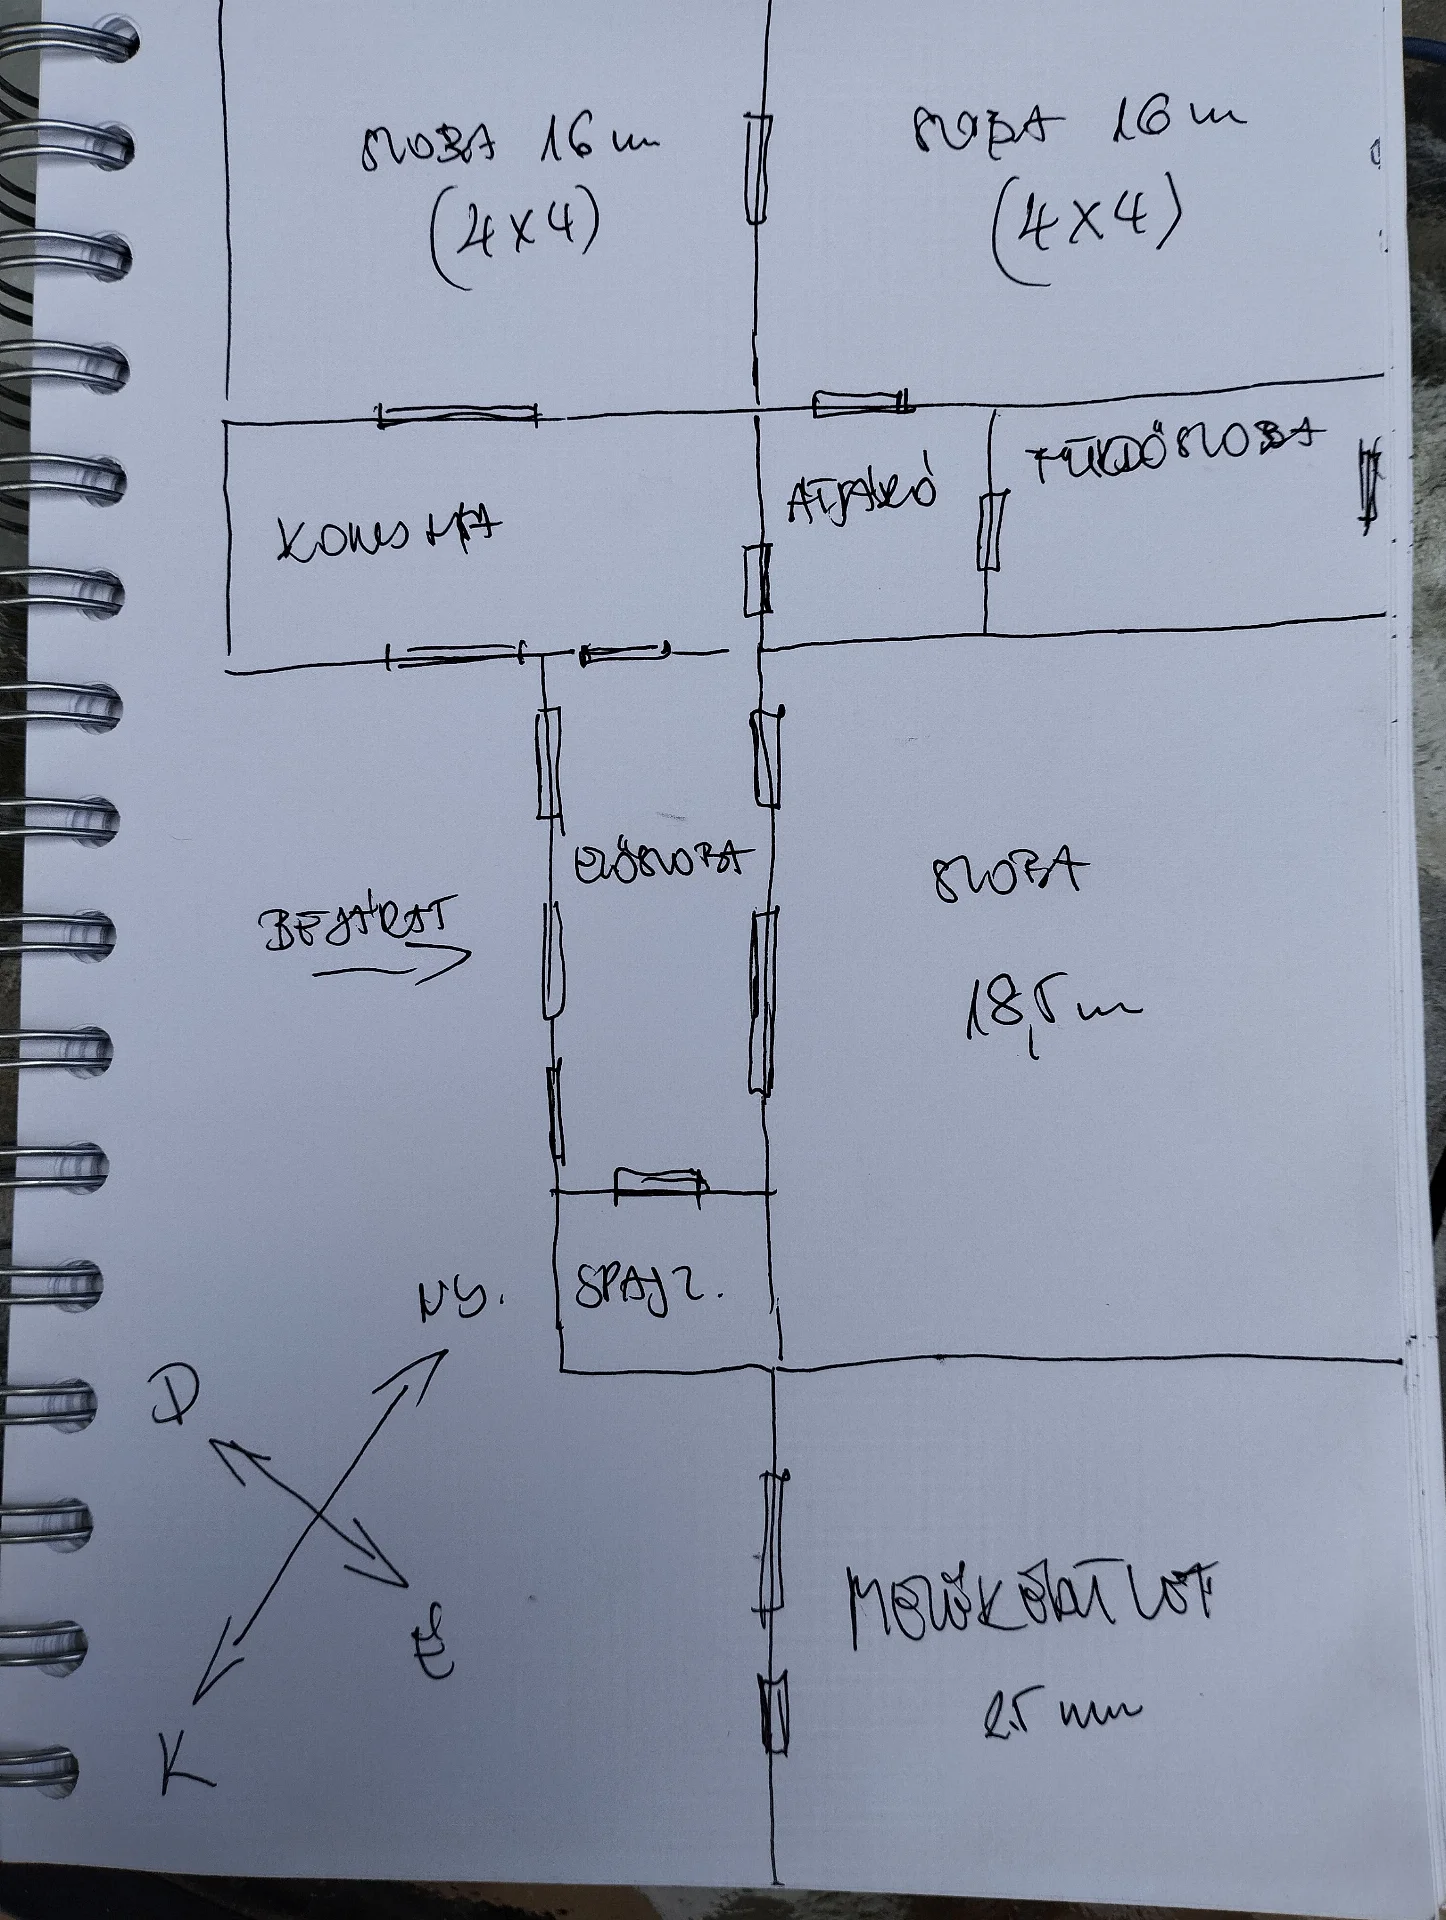 SZOBA 16 m
(4x4)
SZOBA 16 m
(4x4)
KONYHA
ÁTJÁRÓ
FÜRDŐSZOBA
BEJÁRAT
ELŐSZOBA
SZOBA
18,5 m
SPÁJZ.
NY.
D
É
K
MELLÉKÉPÜLET
25 nm